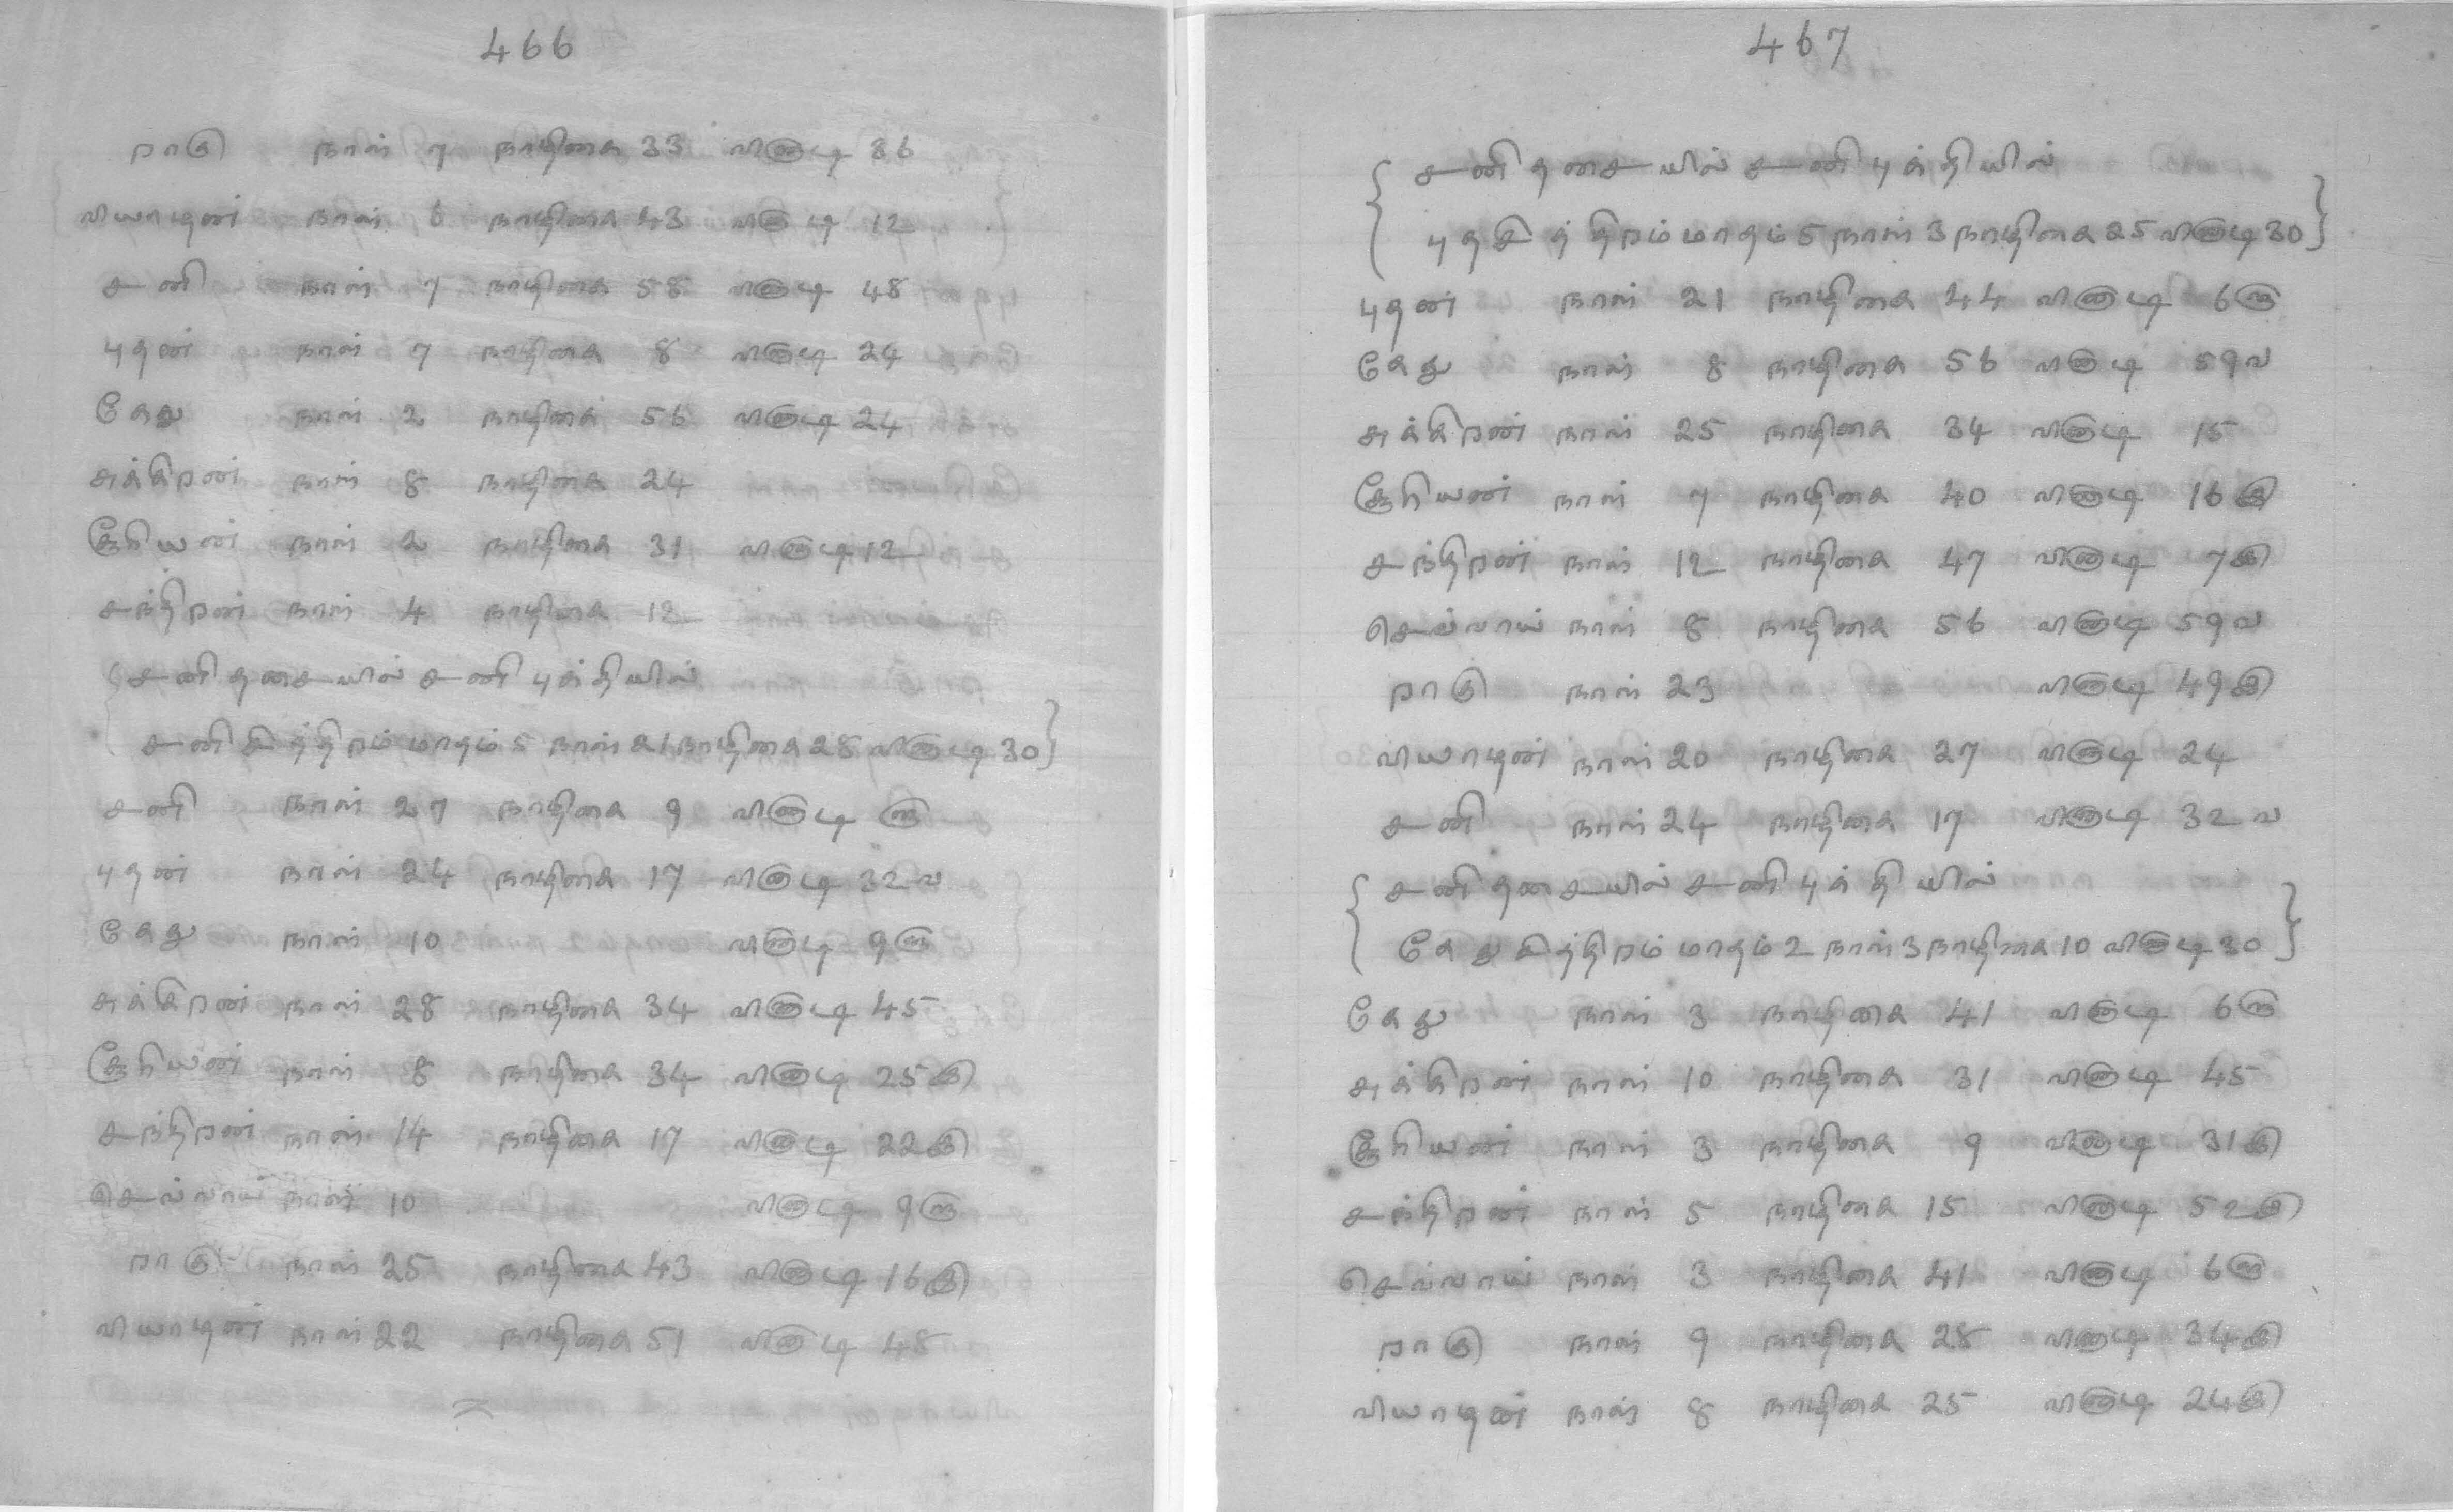 466
ராகு நாள் 7 நாழிகை 33 விகுடி 36
வியாழன் நாள் 6 நாழிகை 43 விகுடி 12
சனி நாள் 7 நாழிகை 58 விகுடி 48
புதன் நாள் 7 நாழிகை 8 விகுடி 24
கேது நாள் 2 நாழிகை 56 விகுடி 24
சுக்கிறன் நாள் 8 நாழிகை 24
சூரியன் நாள் 2 நாழிகை 31 விகுடி 12
சந்திறன் நாள் 4 நாழிகை 12
{ சனி தசையில் சனி புக்தியில்
சனி சித்திறம் மாதம் 5 நாள் 21 நாழிகை 28 விகுடி 30 }
சனி நாள் 27 நாழிகை 9 விகுடி ௫
புதன் நாள் 24 நாழிகை 17 விகுடி 32வ
கேது நாள் 10 விகுடி 9௫
சுக்கிறன் நாள் 28 நாழிகை 34 விகுடி 45
சூரியன் நாள் 8 நாழிகை 34 விகுடி 25௫
சந்திறன் நாள் 14 நாழிகை 17 விகுடி 22௫
செவ்வாய் நாள் 10 விகுடி 9௫
ராகு நாள் 25 நாழிகை 43 விகுடி 16௫
வியாழன் நாள் 22 நாழிகை 51 விகுடி 48
467
{ சனி தசையில் சனி புக்தியில்
புதசித்திறம் மாதம் 5 நாள் 3 நாழிகை 25 விகுடி 30 }
புதன் நாள் 21 நாழிகை 44 விகுடி 6௫
கேது நாள் 8 நாழிகை 56 விகுடி 59வ
சுக்கிறன் நாள் 25 நாழிகை 34 விகுடி 15
சூரியன் நாள் 7 நாழிகை 40 விகுடி 16௫
சந்திறன் நாள் 12 நாழிகை 47 விகுடி 7௫
செவ்வாய் நாள் 8 நாழிகை 56 விகுடி 59வ
ராகு நாள் 23 விகுடி 49௫
வியாழன் நாள் 20 நாழிகை 27 விகுடி 24
சனி நாள் 24 நாழிகை 17 விகுடி 32வ
{ சனி தசையில் சனி புக்தியில்
கேது சித்திறம் மாதம் 2 நாள் 3 நாழிகை 10 விகுடி 30 }
கேது நாள் 3 நாழிகை 41 விகுடி 6௫
சுக்கிறன் நாள் 10 நாழிகை 31 விகுடி 45
சூரியன் நாள் 3 நாழிகை 9 விகுடி 31௫
சந்திறன் நாள் 5 நாழிகை 15 விகுடி 52௫
செவ்வாய் நாள் 3 நாழிகை 41 விகுடி 6௫
ராகு நாள் 9 நாழிகை 28 விகுடி 34௫
வியாழன் நாள் 8 நாழிகை 25 விகுடி 24௫